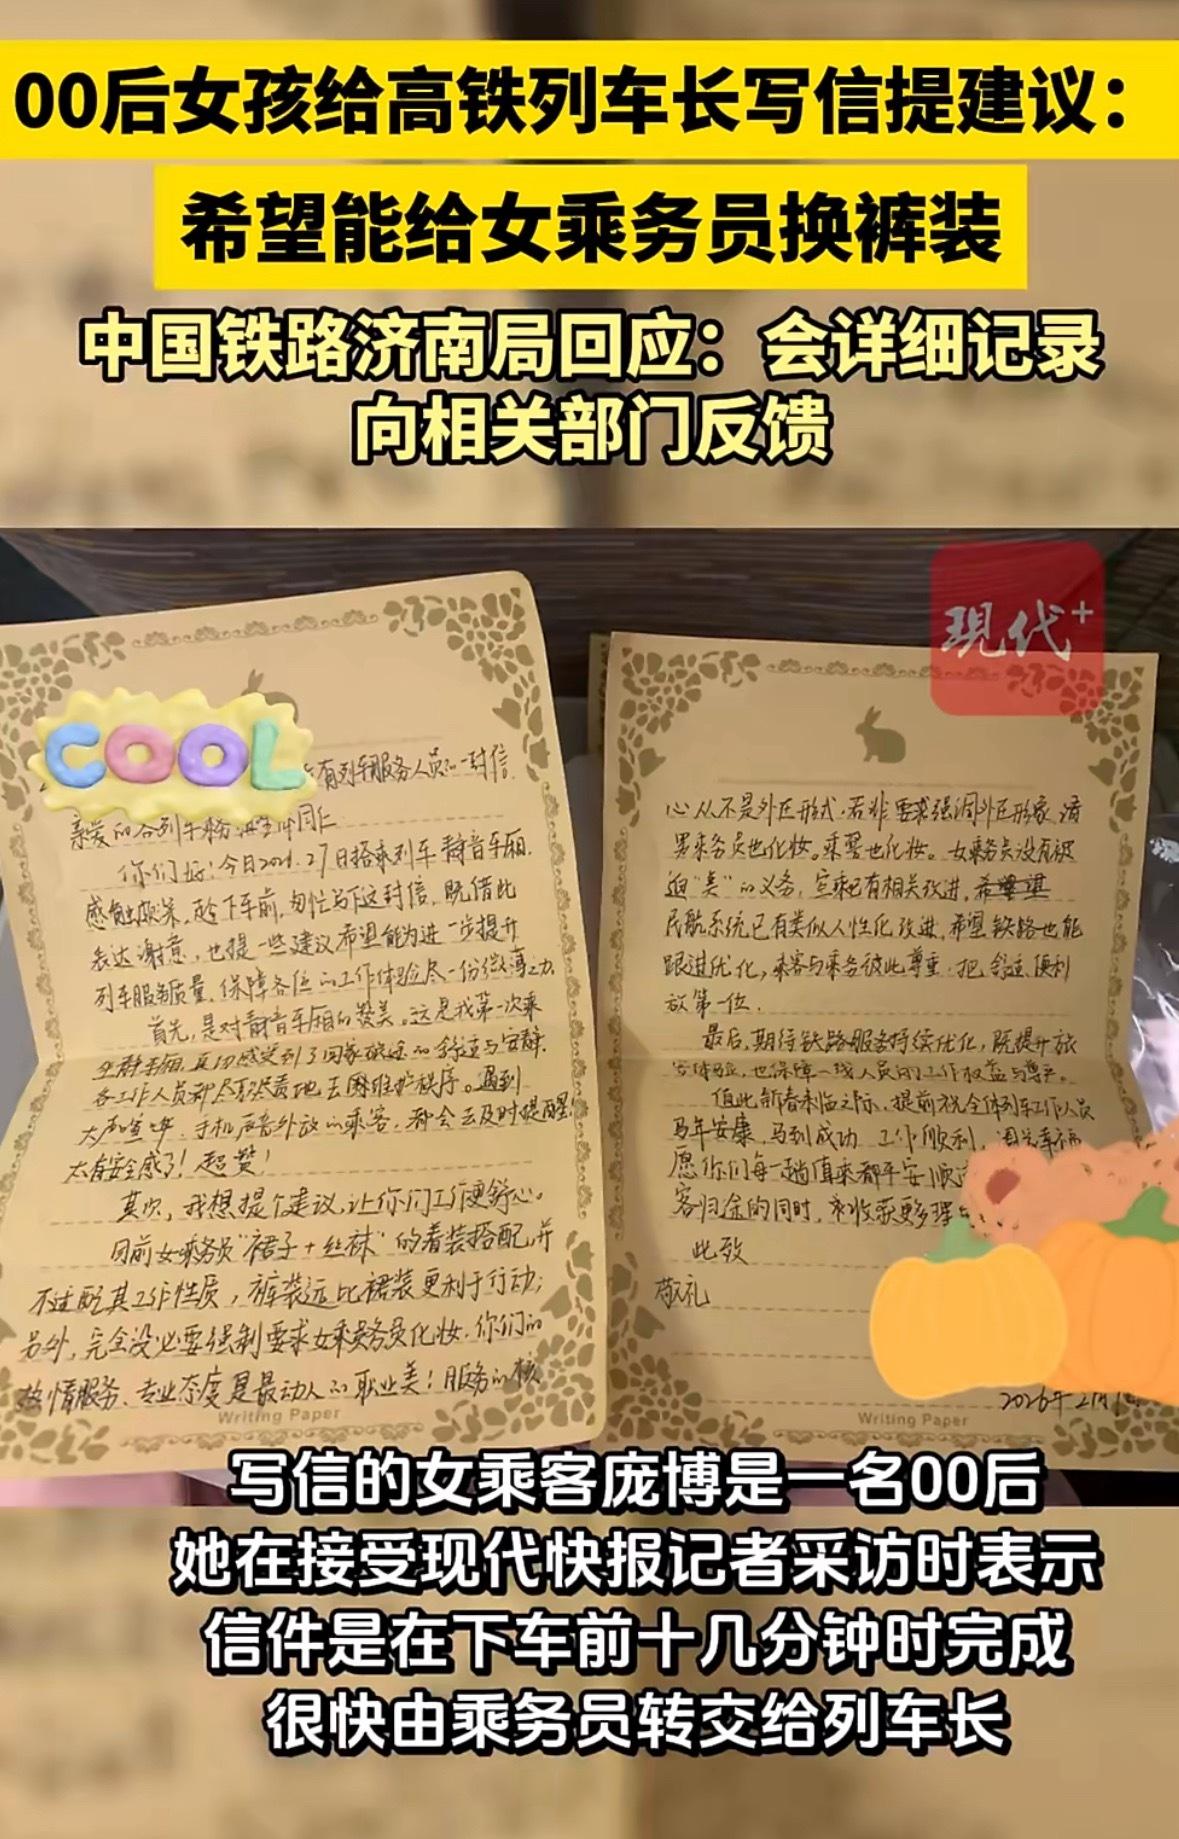 00后女孩给高铁列车长写信提建议：
希望能给女乘务员换裤装
中国铁路济南局回应：会详细记录
向相关部门反馈
现代+
COOL
有列车服务人员的一封信
亲爱的各列车
同仁
你们好！今日搭乘列车静音车厢，
感触颇深，趁下车前，匆忙写下这封信，既借此
表达谢意，也提一些建议希望能为进一步提升
列车服务质量、保障各位的工作体验尽一份微薄之力。
首先，是对静音车厢的赞美。这是我第一次乘
坐静音车厢，真切感受到了回家旅途的舒适与安静，
各工作人员都尽职尽责地去维护秩序。遇到
大声喧哗、手机声音外放的乘客，都会去及时提醒，
太有安全感了！超赞！
其次，我想提个建议，让你们工作更舒心。
目前女乘务员“裙子+丝袜”的着装搭配，并
不适配其工作性质，裤装远比裙装更利于行动；
另外，完全没必要强制要求女乘务员化妆，你们的
热情服务、专业态度是最动人的职业美！服务的核
Writing Paper
心从不是外在形式，若非要求强调外在形象，请
男乘务员也化妆。乘警也化妆。女乘务员没有被
迫“美”的义务，空乘已有相关改进，
民航系统已有类似人性化改进，希望铁路也能
跟进优化，乘客与乘务彼此尊重，把舒适、便利
放第一位。
最后，期待铁路服务持续优化，既提升旅
客体验，也保障一线人员的工作权益与尊严。
值此新春来临之际，提前祝全体列车工作人员
马年安康，马到成功，工作顺利，
愿你们每一趟值乘都平安顺
客归途的同时，亦收获更多理
此致
敬礼
2026年2月
Writing Paper
写信的女乘客庞博是一名00后
她在接受现代快报记者采访时表示
信件是在下车前十几分钟时完成
很快由乘务员转交给列车长